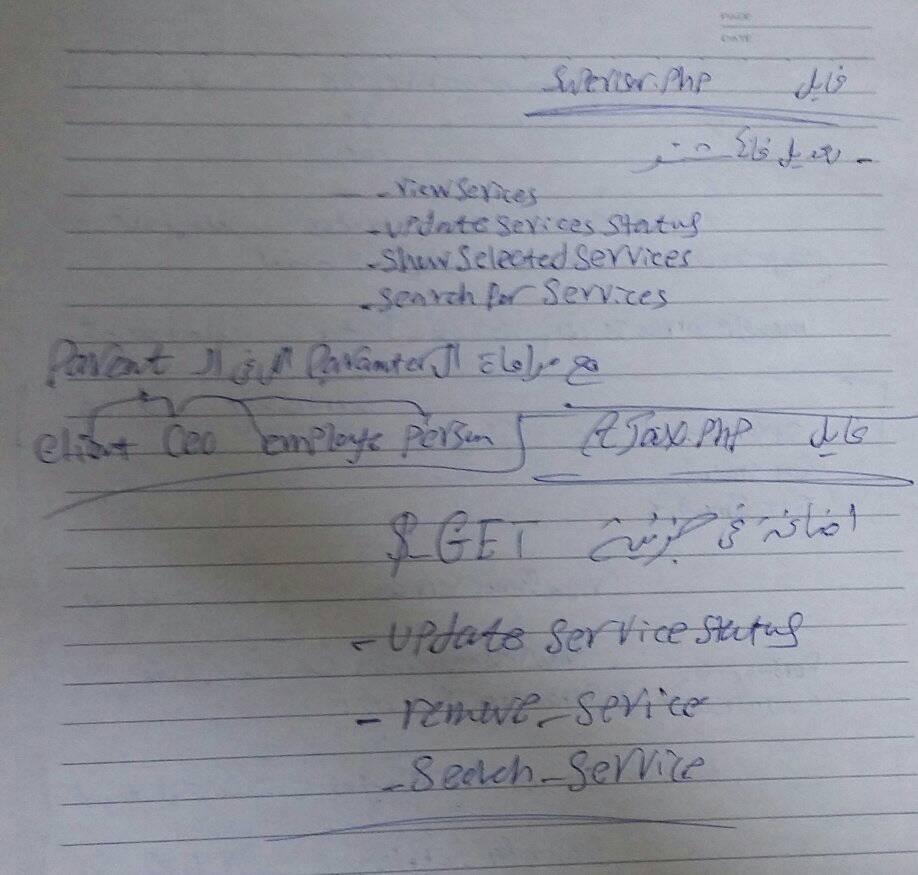 PAGE
DATE
فايل Servier.php
- viewServices
- update Services status
- show Selected Services
- search for Services
مع مراعاة ال Paramter الى فى ال Parent
client ceo employe person
فايل Ajax.php
اضافة فى جزئية $_GET
- update service status
- remove_service
- Seach_service